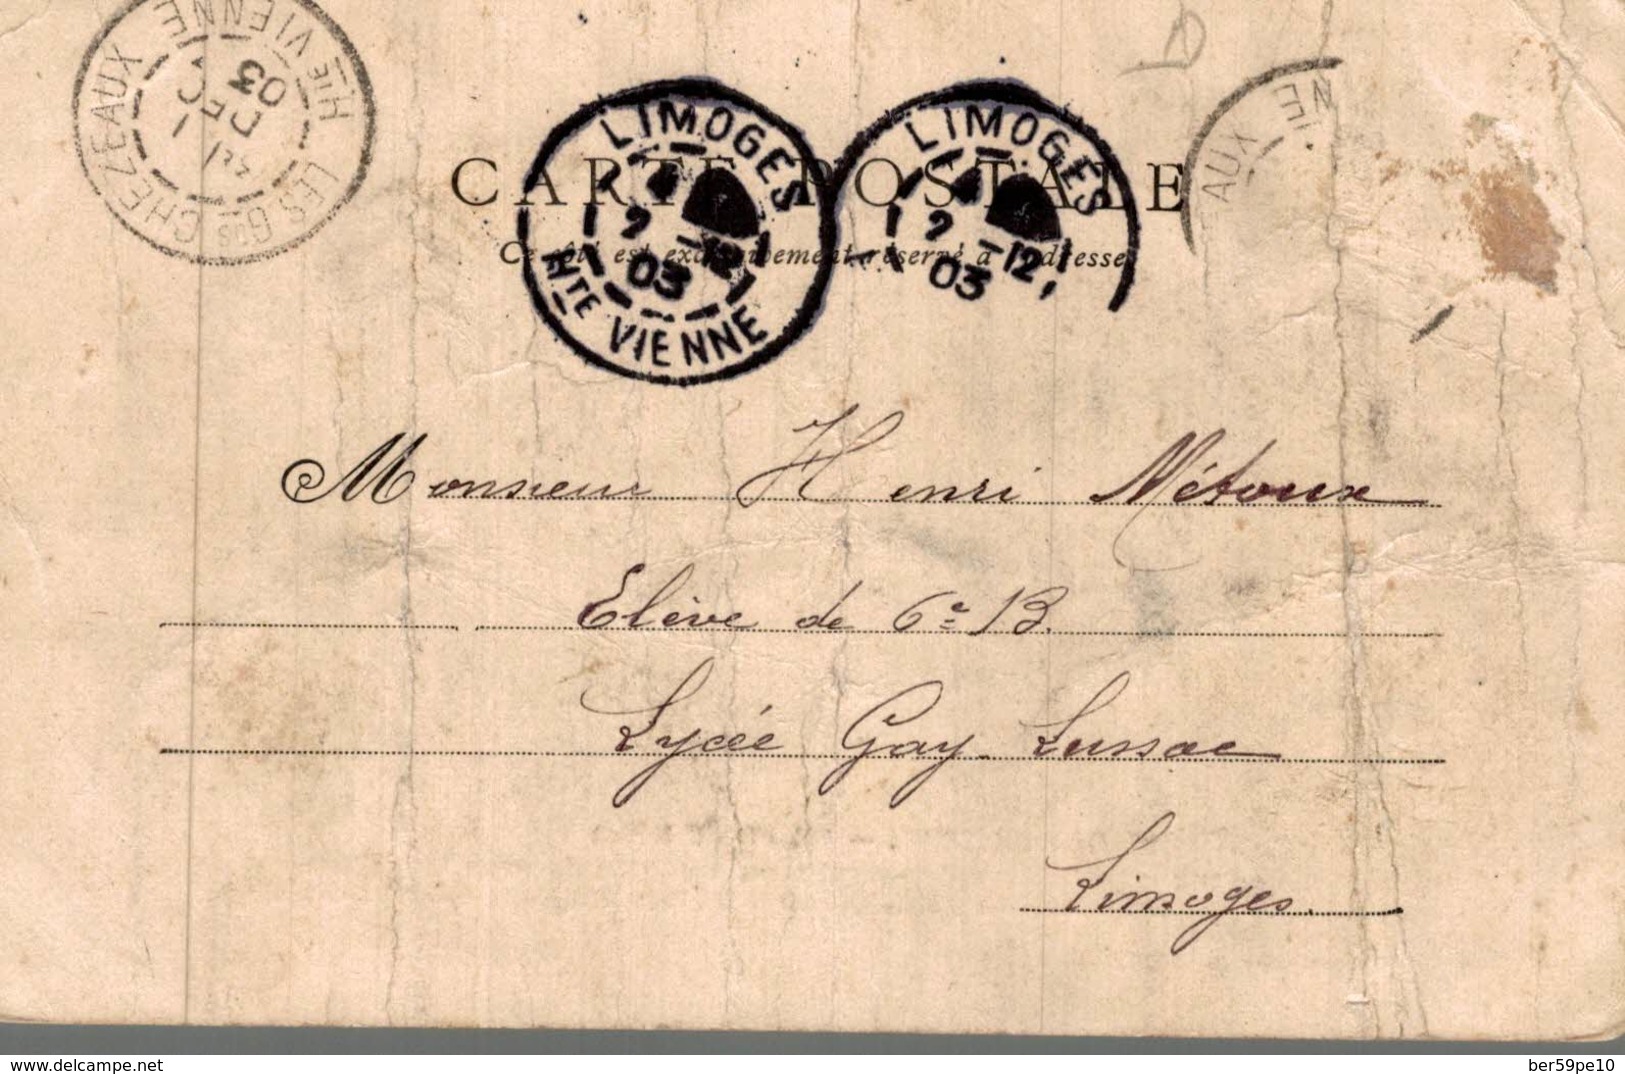 LES Gds CHEZEAUX
Hte VIENNE
1
DEC
03
LIMOGES
2 -12
03
Hte VIENNE
LIMOGES
2 -12
03
EAUX
CARTE POSTALE
Ce côté est exclusivement réservé à l'adresse
Monsieur Henri Métoux
Elève de 6e B.
Lycée Gay-Lussac
Limoges.
delcampe.net
ber59pe10